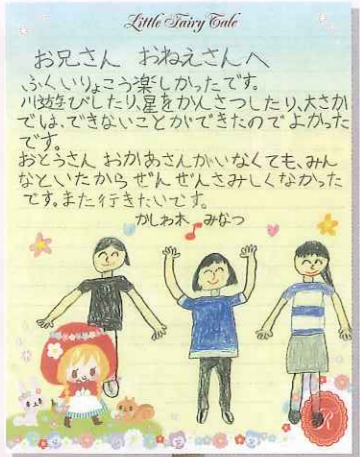 Little Fairy Tale
お兄さん おねえさんへ
ふくいりょこう楽しかったです。
川遊びしたり、星をかんさつしたり、大さか
では、できないことができたのでよかった
です。
おとうさん おかあさんがいなくても、みん
なといたからぜんぜんさみしくなかった
です。また行きたいです。
かしわ木 みなつ
R